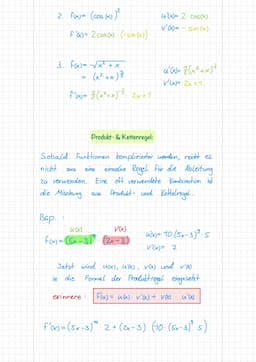 2. f(x) = (cos(x))² u'(x) = 2 cos(x)
v'(x) = - sin(x)
f'(x) = 2 cos(x) · (-sin(x))
3. f(x) = √x² + x
= (x² + x)^½ u'(x) = ½ (x² + x)^-½
v'(x) = 2x + 1
f'(x) = ½ (x² + x)^-½ · 2x + 1
Produkt- & Kettenregel:
Sobald Funktionen komplizierter werden, reicht es
nicht aus eine einzelne Regel für die Ableitung
zu verwenden. Eine oft verwendete Kombination ist
die Mischung aus Produkt- und Kettenregel.
Bsp. :
u(x) v(x)
f(x) = (5x - 3)¹⁰ · (2x - 3) u'(x) = 10 (5x - 3)⁹ · 5
v'(x) = 2
Jetzt wird u(x), u'(x), v(x) und v'(x)
in die Formel der Produktregel eingesetzt
erinnere : f'(x) = u(x) · v'(x) + v(x) · u'(x)
f'(x) = (5x - 3)¹⁰ · 2 + (2x - 3) · (10 · (5x - 3)⁹ · 5)